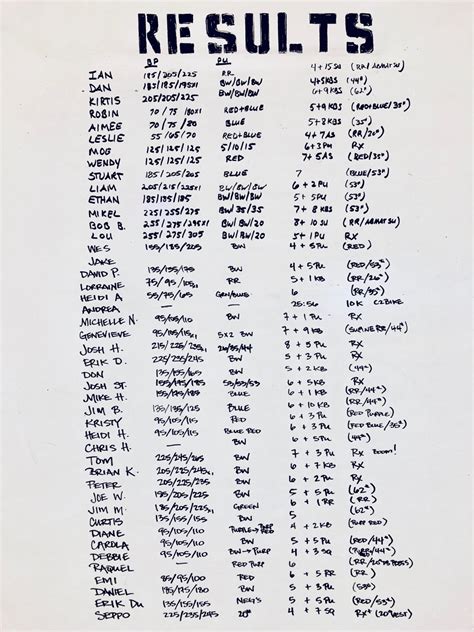 RESULTS
BP PU
IAN 185/205/225 RR 4+15SU (RR/ABMATSU)
DAN 185/185/195X1 BW/BW/BW 4+5KBS (44")
KIRTIS 205/205/225 BW/BW/BW 6+9KBS (62")
ROBIN 70/75/80X1 RED+BLUE 5+9KBS (RED+BLUE/35")
AIMEE 70/75/80 BLUE 5+8KBS (35")
LESLIE 55/65/70 RED+BLUE 4+7AS (RR/20")
MOG 125/125/125 5/10/15 6+3PU RX
WENDY 125/125/125 RED 7+5AS (RED/35")
STUART 185/205/205 BLUE 7 (BLUE/53")
LIAM 205/215/225X1 BW/BW/BW 6+2PU (53")
ETHAN 185/185/185 BW/BW/BW 6+5PU (53")
MIKEL 225/255/275 BW/35/35 7+8KBS (53")
BOB B. 255/275/290X1 BW/BW/20 8+10SU (RR/ABMATSU)
LOU 255/275/295X1 BW/BW/20 5+1PU RX
WES 155/185/205 BW 4+5PU (RED)
JAKE
DAVID P. 135/155/175 BW 4+5PU (RED/53")
LORRAINE 75/95/105 RR 5+1PU (RR/26")
HEIDI A 55/75/165 GRN/BLUE 6 (RR/35")
ANDREA — — 25:56 10K C2BIKE
MICHELLE N. 95/105/110 BW 7+1PU RX
GENEVIEVE 95/105/115 5X2 BW 7+9KB (SUPINE RR/44")
JOSH H. 215/235/245 26/35/44 8+5PU RX
ERIK D. 225/235/245 BW 5+3PU RX
DON 135/155/165 BW 5+2KB RX
JOSH ST. 155/175/185 53/53/53 6+5KB RX
MIKE H. 135/155/185 BW 6+1KB (RR/44")
JIM B. 135/155/185 BLUE 6+10KB (RR/44")
KRISTY 95/105/115 RED 6+3PU (RED PURPLE)
HEIDI H. 95/105/110 BLUE RED 6+3PU (RED BLUE/35")
CHRIS H. — — 6+5PU (44")
TOM 225/245/265 BW 7+3PU RX BOOM!
BRIAN K. 205/225/245 BW 6+7KB RX
PETER 205/225/245 BW 6+2PU RX
JOE W. 185/205/225 BW 5+5PU (62")
JIM M. 185/205/215 BW 6+1KB (RR)
CURTIS 135/155/155 GREEN 5 (62")
DIANE 95/105/110 PURPLE→RED 4+2KB (PURP RED)
CAROLA 95/105/110 BW 5+5PU (RED/44")
DEBBIE 95/105/110 BW→PURP 4+3SQ (PURP/44")
RAQUEL — RED 6
EMI 85/95/100 RED 6+5RR (RR)
DANIEL 135/155/185 BW 5+3PU (53")
ERIK DU 135/155/185 NEG'S 5+5PU (RED/44")
SEPPO 205/225/245 20" 4+7SQ RX (+20"VEST)